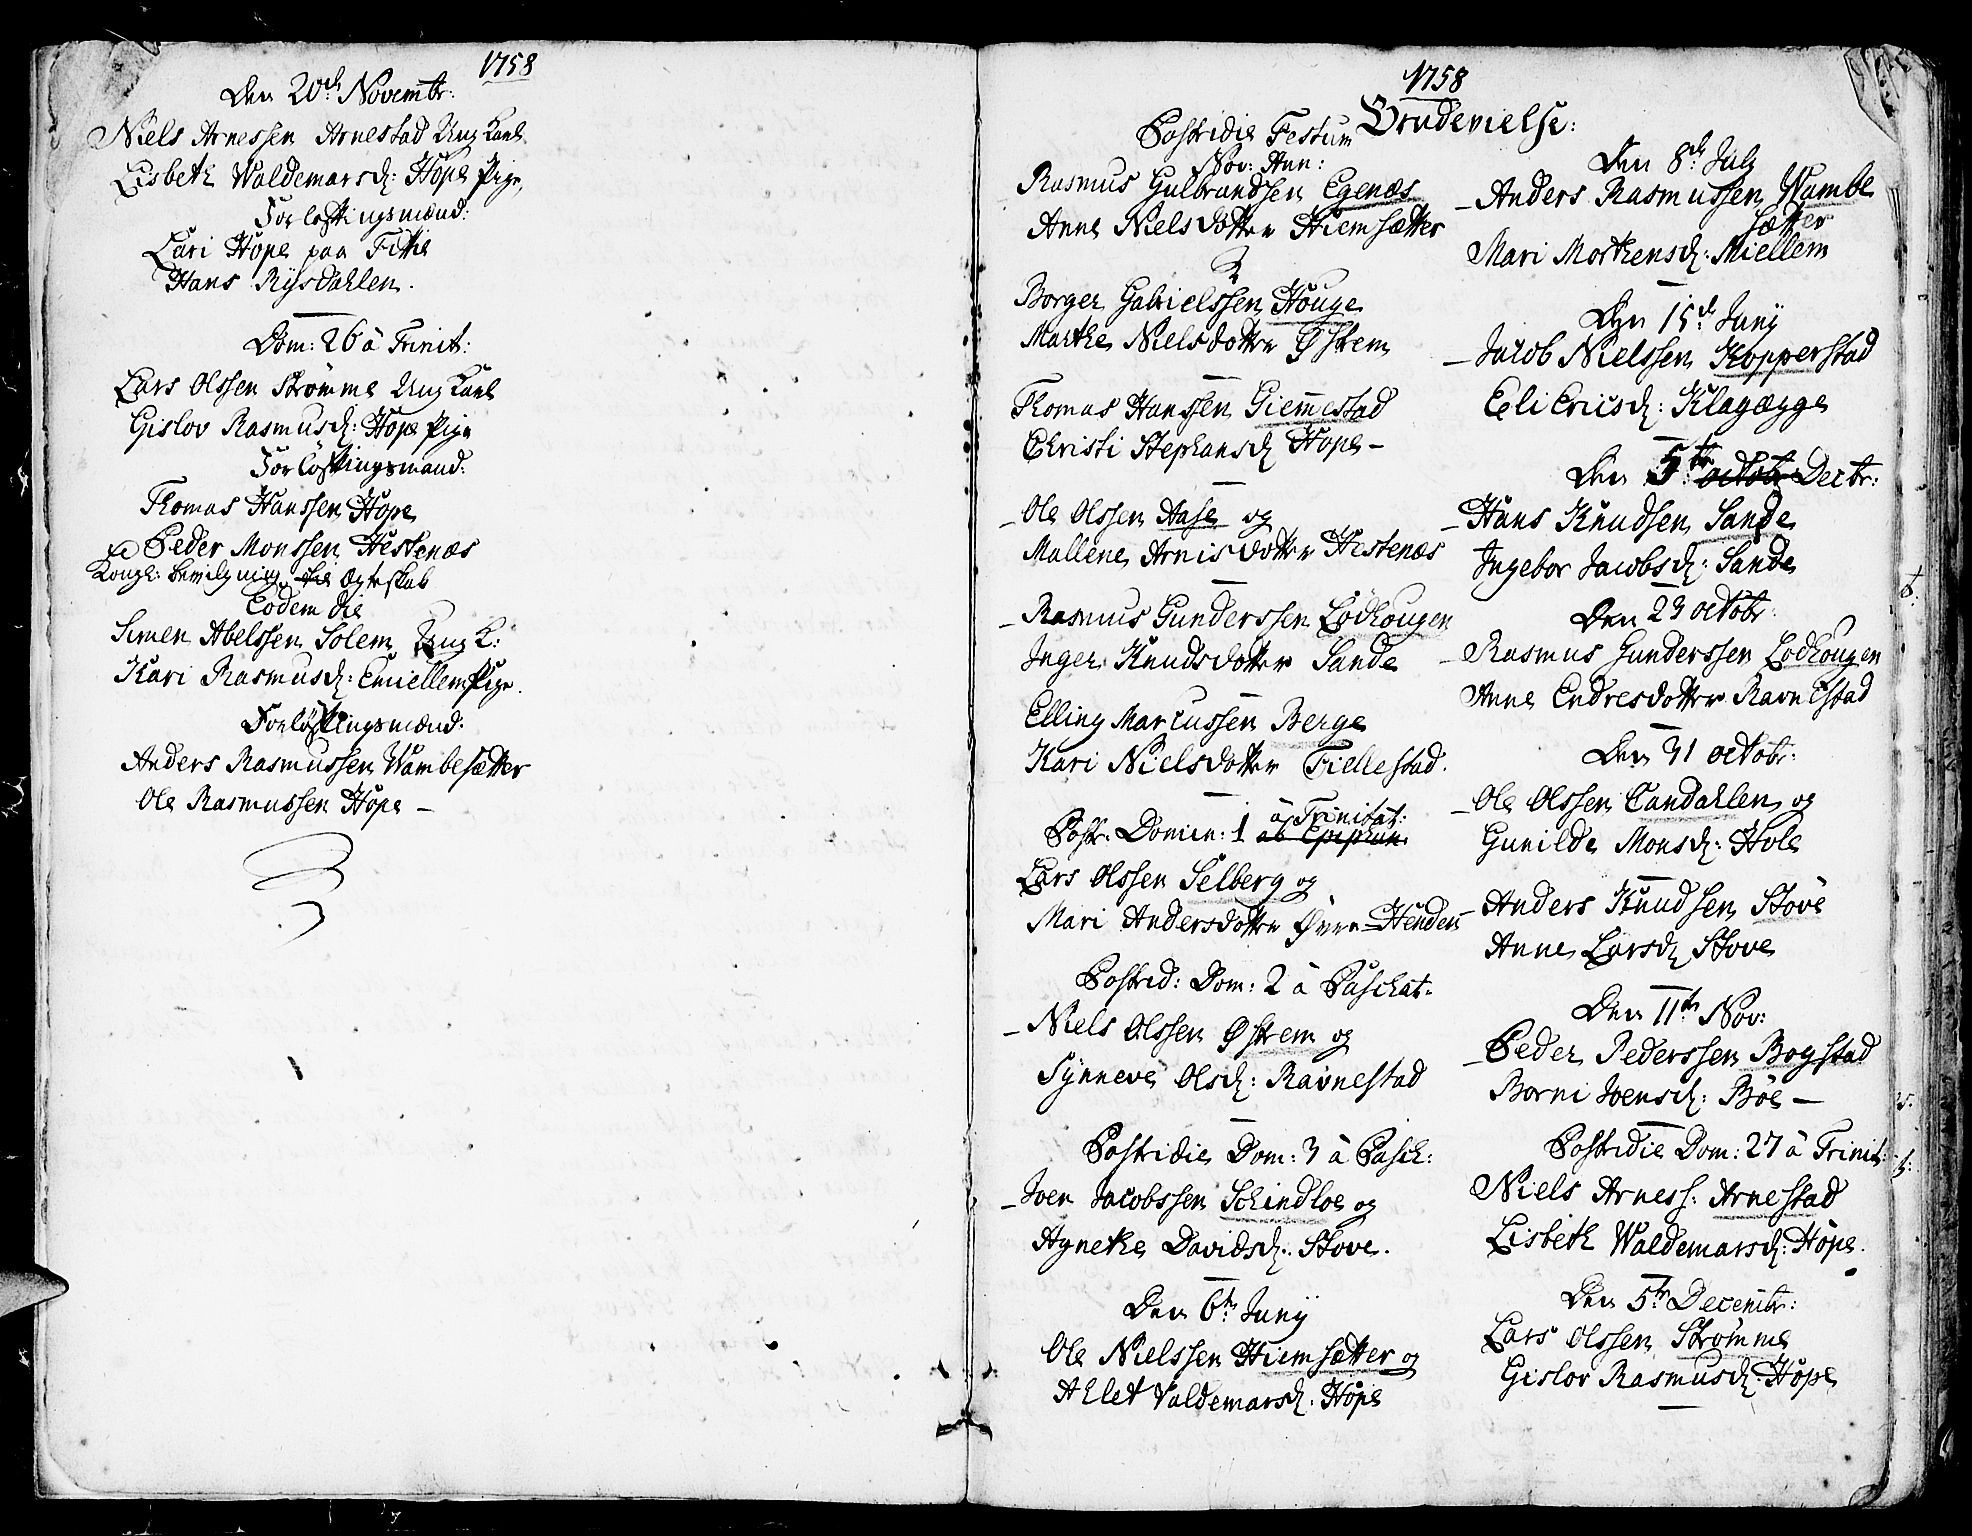 1758
Den 20de Novembr:
Niels Arnessen Arnestad Ung Karl
Lisbeth Waldemarsd: Hope Pige,
Forlostingsmænd:
Lari Hope paa Fittie
Hans Rysdahlen.
Dom: 26 à Trinit:
Lars Olssen Strømme Ung Karl
Gislov Rasmusd: Hope Pige
Forlöstingsmænd:
Thomas Hanssen Hope
Peder Monssen Hestenæs
Kongl: bevilgning Ægteskab
Eodem die
Simen Abelssen Solem Ung K:
Kari Rasmusd: Emiellem Pige.
Forlöstingsmænd:
Anders Rasmussen Wambesætter
Ole Rasmussen Hope –
1758
Brudevielse:
Postridie Festum
Nov: Ann:
Rasmus Gulbrandsen Egenæs
Anne Nielsdotter Hiemsætter
Borger Gabrielssen Houge
Marthe Nielsdotter Østrem
Thomas Hanssen Giemestad
Christi Stephansd Hope –
– Ole Olssen Aase og
Mallene Arnisdotter Hestenæs
– Rasmus Gunderssen Lødhougen
Inger Knudsdotter Sande
Elling Marcussen Berge
Kari Nielsdotter Fiellestad.
à Trinitat:
Postr: Domin: 1 ab Epiphan:
Lars Olssen Selberg og
Mari Andersdotter Øvre-Henden
Postrid: Dom: 2 à Paschat:
– Niels Olssen Østrem og
Synneve Olsd: Ravnestad
Postridie Dom: 3 à Pasch:
– Joen Jacobssen Schindloe og
Agnethe Davidsd: Stove.
Den 6te Junij
Ole Nielssen Hiemsætter og
Ahlet Valdemarsd: Hope
Den 8de July
– Anders Rasmussen Wambe
sætter
Mari Morthensd: Miellem
Den 15de Junij
– Jacob Nielssen Kopperstad
Eli Ericsd: Klagægge
Den 5te octob Decbr:
– Hans Knudsen Sande
Ingebor Jacobsd: Sande
Den 23 octobr:
– Rasmus Gunderssen Lødhougen
Anne Endresdotter Ravnestad
Den 31 octobr:
– Ole Olssen Candahlen og
Gunilde Monsd: Hole
– Anders Knudsen Stove
Anne Larsd Stove
Den 11te Nov:
– Peder Pederssen Bogstad
Borni Joensd: Böe –
Postridie Dom: 27 à Trinit:
Niels Arness: Arnestad
Lisbeth Waldemarsd: Hope.
Den 5te Decembr:
Lars Olssen Strömme
Gislov Rasmusd Hope